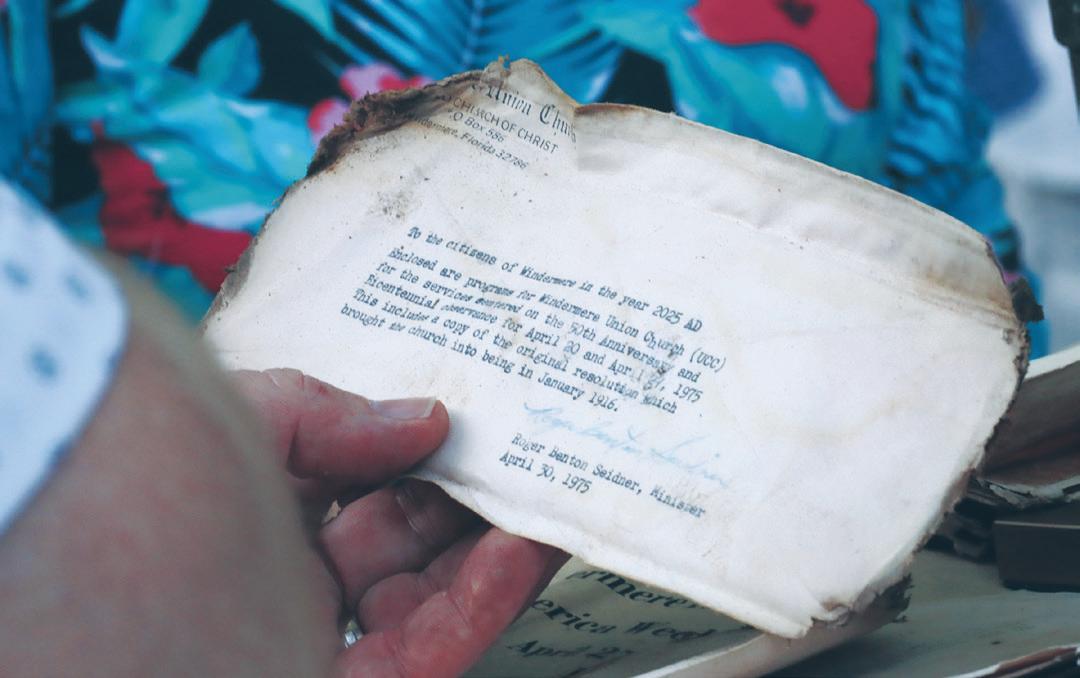 Union Chu
CHURCH OF CHRIST
P.O Box 586
Florida 32786
To the citizens of Windermere in the year 2025 AD
Enclosed are programs for Windermere Union Church (UCC)
for the services on the 50th Anniversary and
Bicentennial observance for April 20 and Apr 1975
This includes a copy of the original resolution which
brought the church into being in January 1916.
Roger Benton Seidner, Minister
April 30, 1975
ermere
erica Week
April 2